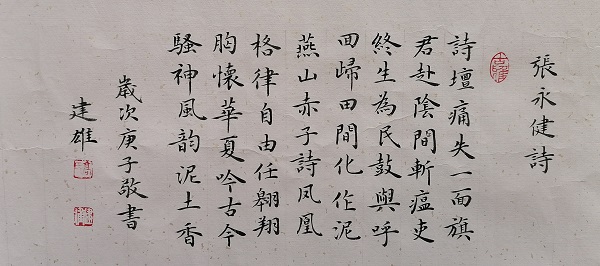 張永健詩
詩壇痛失一面旗
君赴陰間斬瘟吏
終生為民鼓與呼
回歸田間化作泥
燕山赤子詩凤凰
格律自由任翱翔
胸懷華夏吟古今
騷神風韵泥土香
歲次庚子敬書
建雄